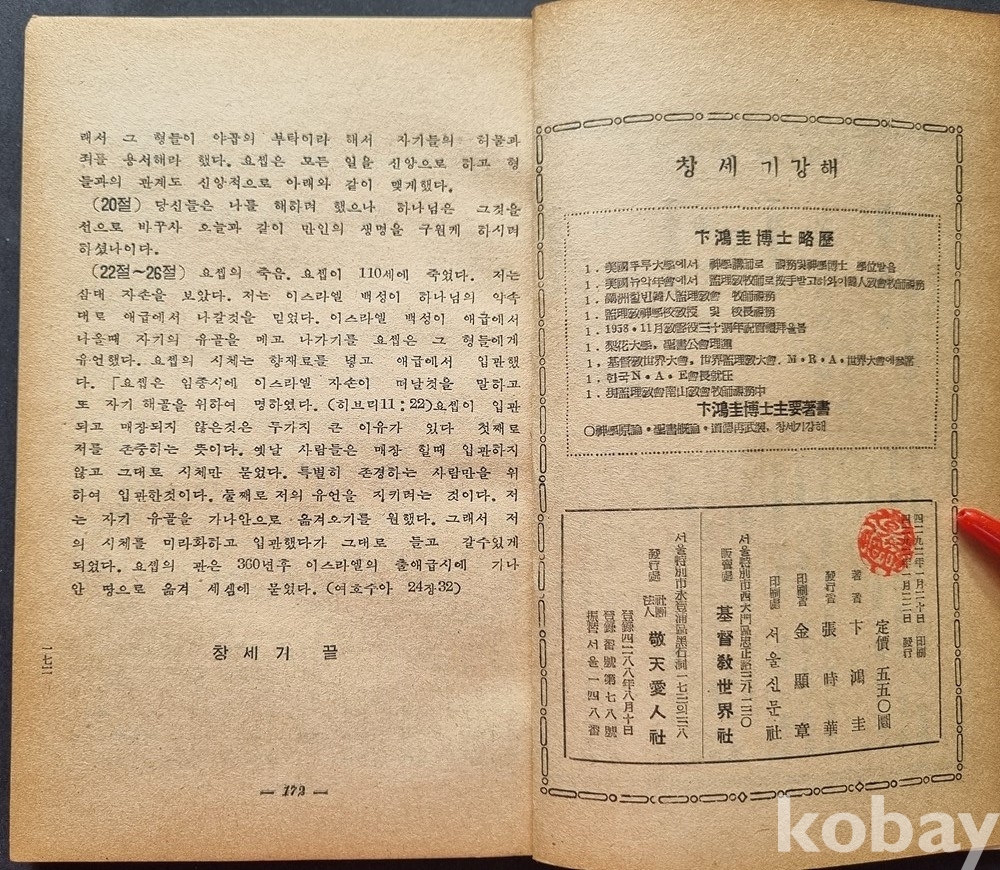 래서 그 형들이 야곱의 부탁이라 해서 자기들의 허물과
죄를 용서해라 했다. 요셉은 모든 일을 신앙으로 하고 형
들과의 관계도 신앙적으로 아래와 같이 맺게했다.
(20절) 당신들은 나를 해하려 했으나 하나님은 그것을
선으로 바꾸사 오늘과 같이 만인의 생명을 구원케 하시려
하셨나이다.
(22절~26절) 요셉의 죽음. 요셉이 110세에 죽었다. 저는
삼대 자손을 보았다. 저는 이스라엘 백성이 하나님의 약속
대로 애급에서 나갈것을 믿었다. 이스라엘 백성이 애급에서
나올때 자기의 유골을 메고 나가기를 요셉은 그 형들에게
유언했다. 요셉의 시체는 향재료를 넣고 애급에서 입관했
다. 「요셉은 임종시에 이스라엘 자손이 떠날것을 말하고
또 자기 해골을 위하여 명하였다. (히브리11:22)요셉이 입관
되고 매장되지 않은것은 두가지 큰 이유가 있다 첫째로
저를 존중하는 뜻이다. 옛날 사람들은 매장 할때 입관하지
않고 그대로 시체만 묻었다. 특별히 존경하는 사람만을 위
하여 입관한것이다. 둘째로 저의 유언을 지키려는 것이다. 저
는 자기 유골을 가나안으로 옮겨오기를 원했다. 그래서 저
의 시체를 미라화하고 입관했다가 그대로 들고 갈수있게
되었다. 요셉의 관은 360년후 이스라엘의 출애급시에 가나
안 땅으로 옮겨 세겜에 묻었다. (여호수아 24장32)
창세거 끝
一七二
— 172 —
창세기강해
卞鴻圭博士略歷
1. 美國뚜루大學에서 神學講師로 視務및神學博士 學位받음
1. 美國뉴욕年會에서 監理敎牧師로按手받고하와이韓人敎會牧師視務
1. 滿洲할빈韓人監理敎會 牧師視務
1. 監理敎神學校敎授 및 校長視務
1. 1958·11月敎役三十週年祝賀禮拜올봄
1. 梨花大學, 聖書公會理事
1. 基督敎世界大會, 世界監理敎大會, M·R·A·世界大會에參席
1. 한국N·A·E會長就任
1. 現監理敎會南山敎會牧師視務中
卞鴻圭博士主要著書
○神學原論·聖書槪論·道德再武裝, 창세기강해
四二九二年一月二十日 印刷
四二九二年一月二二日 發行
定價 五五〇圜
著者 卞鴻圭
發行者 張時華
印刷者 金顯章
印刷所 서울신문社
서울特別市西大門區忠正路三가一三〇
販賣處 基督敎世界社
서울特別市永登浦區黑石洞一七三의三八
發行處 社團法人 敬天愛人社
登錄四二八八年八月十日
登錄番號第七八號
振替서울一四八番
kobay